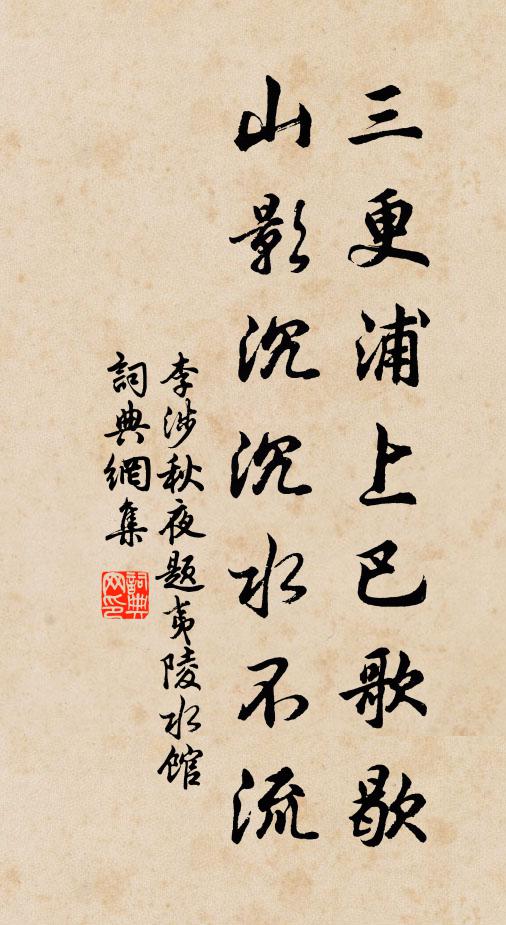 三更浦上巴歌歇
山影沉沉水不流
李涉秋夜題夷陵水館
詞典網集
詞典網印